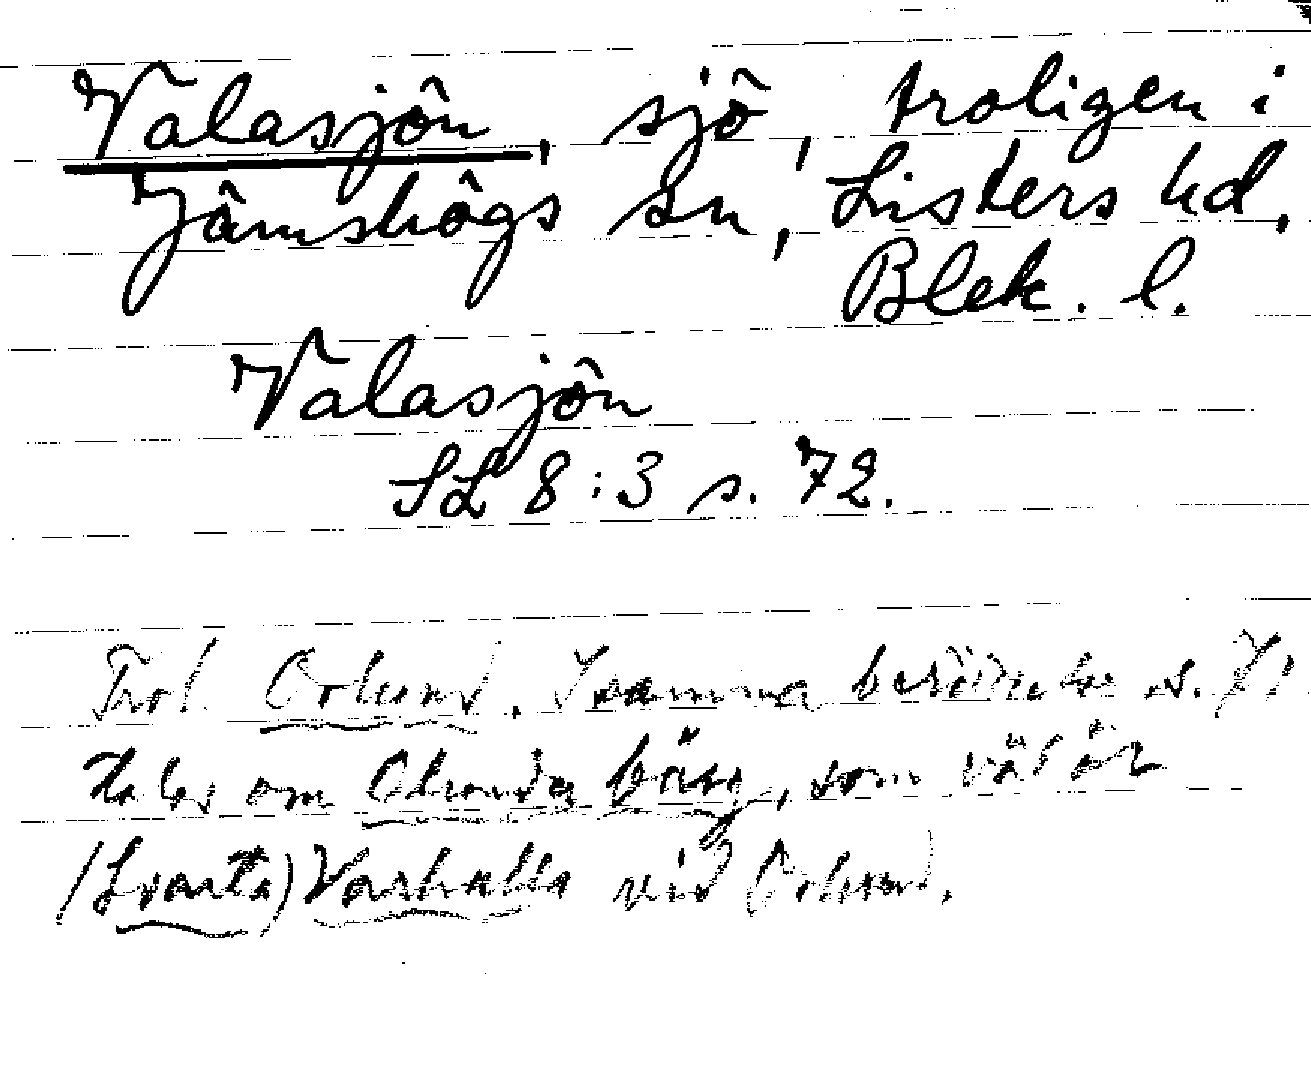 Valasjön, sjö, troligen i
Jämshögs sn, Listers hd,
Blek. l.
Valasjön
SL 8:3 s. 72.
Trol. Orlund. I samma berättelse s. 71
talas om Olunda bärg, som väl är
(Svarta) Varhalla vid Orlund.